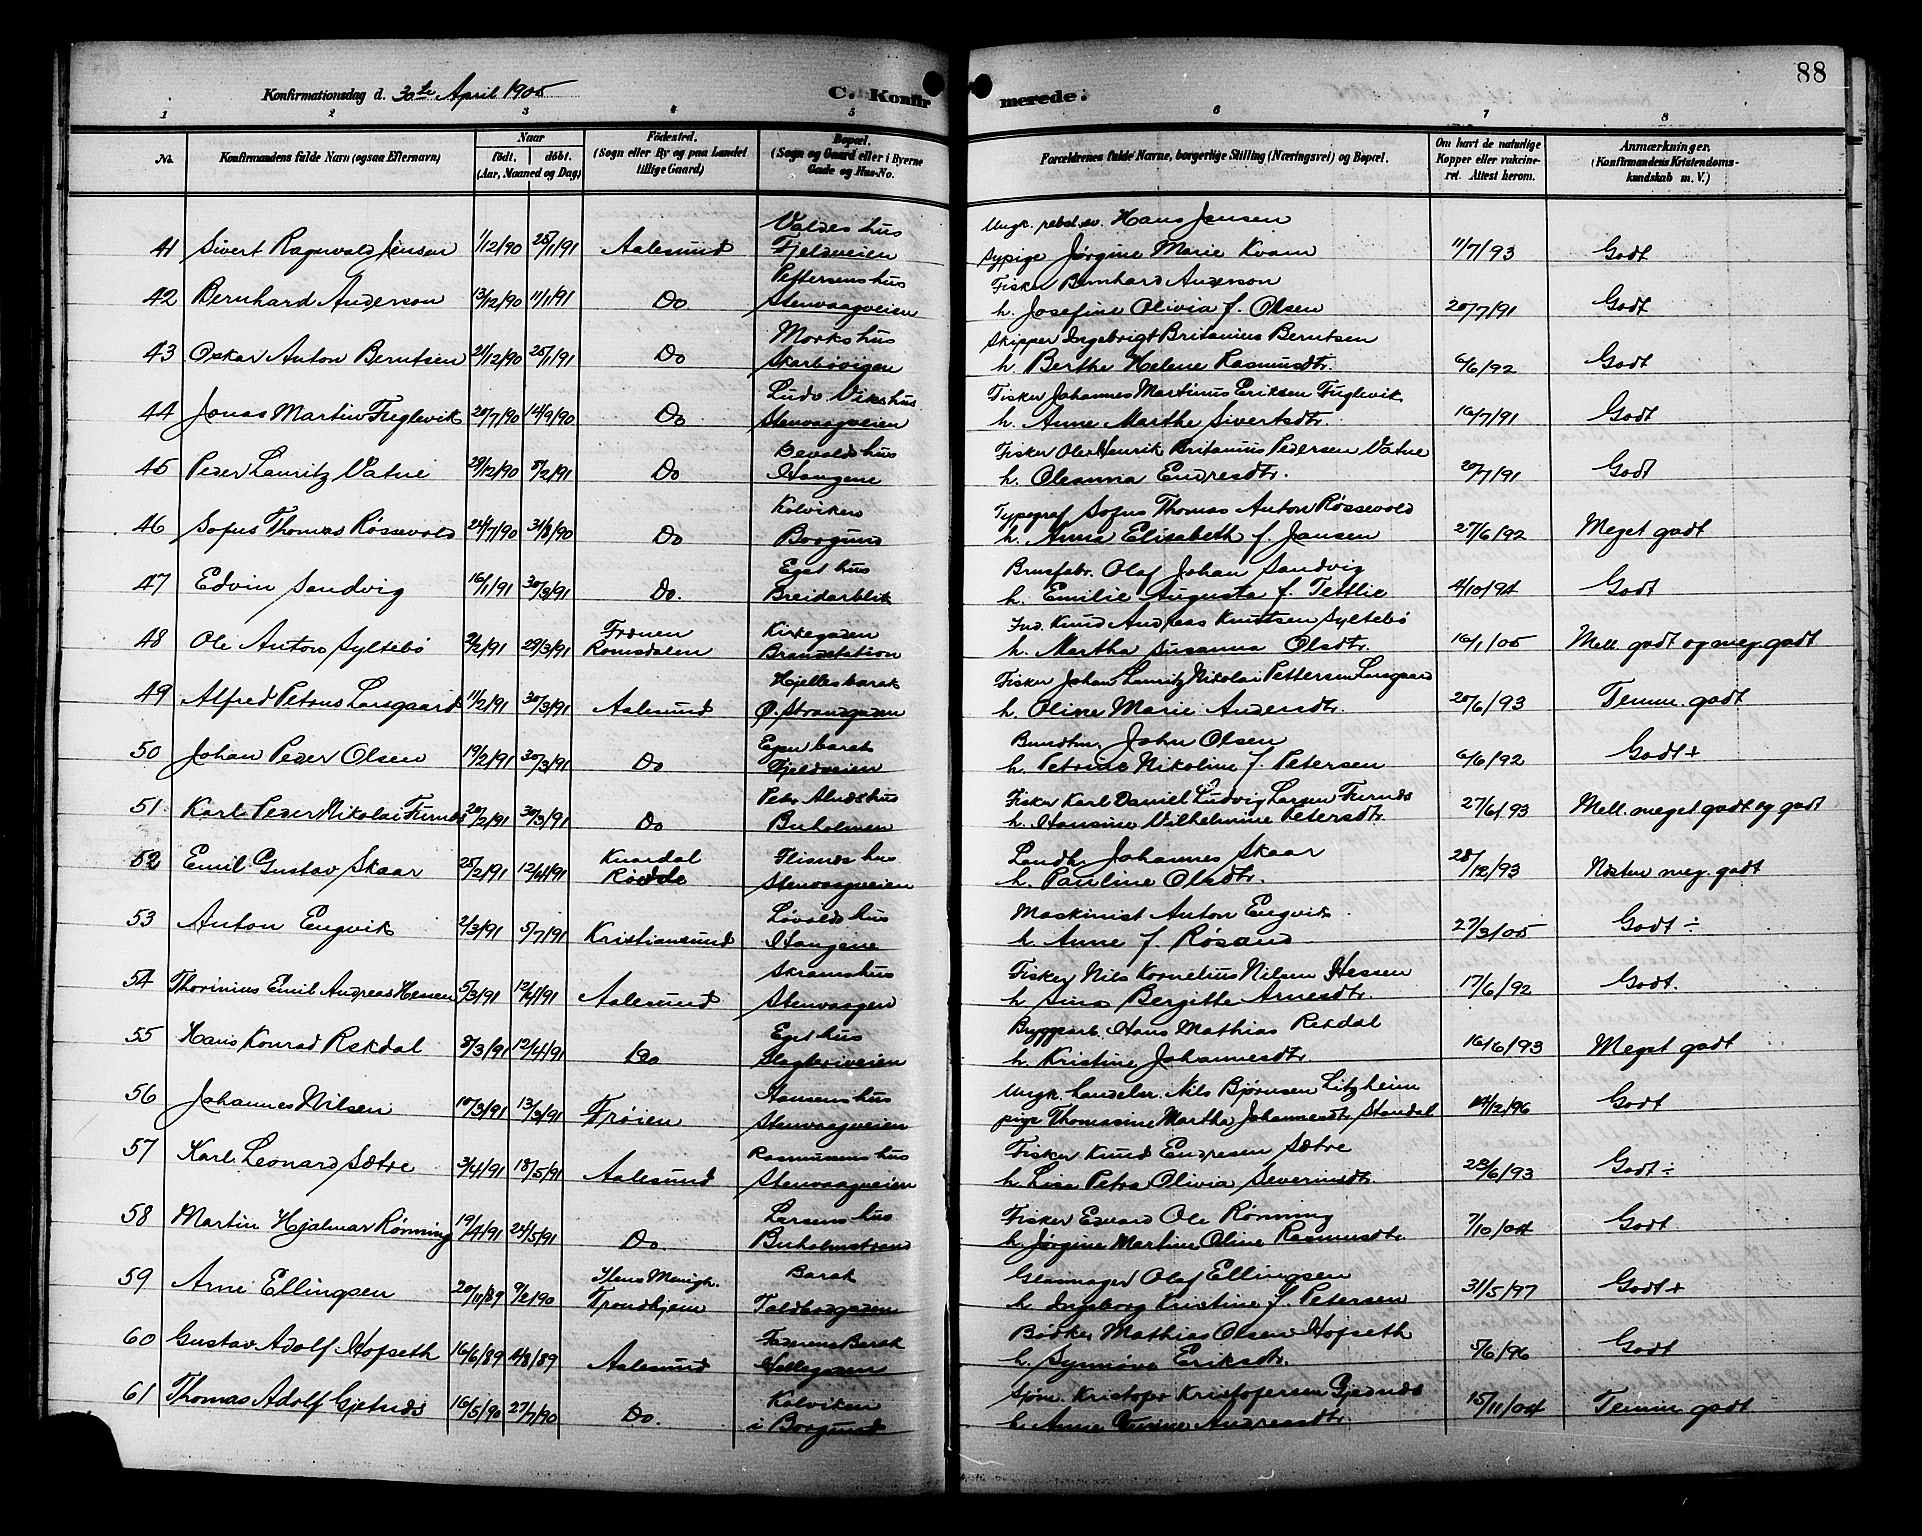 88
Konfirmationsdag d. 30te April 1905 C. Konfir merede.
1 2 3 4 5 6 7 8
No. Konfirmandens fulde Navn (ogsaa Efternavn) Naar födt. döbt. (Aar, Maaned og Dag) Födested. (Sogn eller By og paa Landet tillige Gaard) Bopæl. (Sogn og Gaard eller i Byerne Gade og Hus-No. Forældrenes fulde Navne, borgerlige Stilling (Næringsvei) og Bopæl. Om havt de naturlige Kopper eller vakcineret. Attest herom. Anmærkninger. (Konfirmandens Kristendomskundskab m. V.)
Valdes hus Ungk. Hans Jensen
41 Sivert Ragnvald Jensen 1/12/90 25/1/91 Aalesund Fjeldveien Sypige Jørgine Marie Kvam 11/7/93 Godt
Pettersens hus Fisker Bernhard Anderson
42 Bernhard Anderson 13/12/90 11/1/91 Do. Stenvaagveien h. Josefine Olivia f. Olsen 20/7/91 Godt
Morks hus Skipper Ingebrigt Britanius Berntsen
43 Oskar Anton Berntsen 21/12/90 25/1/91 Do Skarbövigen h. Berthe Helene Rasmusdtr. 6/6/92 Godt
Ludv. Viks hus Fisker Johannes Martinus Eriksen Fuglevik
44 Jonas Martin Fuglevik 20/7/90 14/9/90 Do Stenvaagveien h. Anne Marthe Sivertsdtr. 16/7/91 Godt
Devolds hus Fisker Ole Henrik Britanius Pedersen Vatne
45 Peder Lauritz Vatne 29/12/90 5/2/91 Do Haugene h. Oleanna Endresdtr. 20/7/91 Godt
Kolviken Typograf Sofus Thomas Anton Røssevold
46 Sofus Thomas Røssevold 24/7/90 31/8/90 Do Borgund h. Anna Elisabeth f. Jansen 27/6/92 Meget godt
Eget hus Brusfabr. Olaf Johan Sandvig
47 Edvin Sandvig 16/1/91 30/3/91 Do. Breidablik h. Emilie Augusta f. Tettlie 4/10/94 Godt
Frænen Kirkegaden Ind. Knud Andreas Knutsen Syltebö
48 Ole Anton Syltebö 2/2/91 29/3/91 Romsdalen Brandstation h. Martha Susanna Olsdtr. 16/1/05 Mell. godt og meg. godt
Hjelles barak Fisker Johan Lauritz Nikolai Pettersen Longaard
49 Alfred Petrus Lorsgaard 11/2/91 30/3/91 Aalesund Ø. Strandgaden h. Oline Marie Andersdtr. 20/6/93 Temm. godt
Egen barak John Olsen
50 Johan Peder Olsen 19/2/91 30/3/91 Do Fjeldveien h. Petrine Nikoline f. Petersen 6/6/92 Godt +
Petr. Alnes hus Fisker Karl Daniel Ludvig Larsen Furnes
51 Karl Peder Nikolai Furnes 20/2/91 30/3/91 Do Buholmen h. Hansine Vilhelmine Petersdtr. 27/6/93 Mell. meget godt og godt
Kvardal Flisnes hus Landh. Johannes Skaar
52 Emil Gustav Skaar 25/2/91 12/4/91 Rödde Stenvaagveien h. Pauline Olsdtr. 28/12/93 Næsten meg. godt
Løvolds hus Maskinist Anton Engvik
53 Anton Engvik 2/3/91 5/7/91 Kristiansund Haugene h. Anne f. Røsand 27/3/05 Godt ÷
Skrams hus Fisker Nils Kornelius Nilsen Hessen
54 Thorinius Emil Andreas Hessen 5/3/91 12/4/91 Aalesund Stenvaagen h. Sina Bergitte Arnesdtr. 17/6/92 Godt.
Eget hus Byggearb. Hans Mathias Rekdal
55 Hans Konrad Rekdal 8/3/91 12/4/91 Do Slagteriveien h. Kristine Johannesdtr. 16/6/93 Meget godt
Hansens hus Ungk. handelsr. Nils Bjørnsen Litzheim
56 Johannes Nilsen 10/3/91 13/3/91 Frøien Stenvaagveien pige Thomasine Martha Johannesdtr. Standal 14/2/96 Godt
Rasmusens hus Fisker Knud Endresen Sætre
57 Karl Leonard Sætre 3/4/91 18/5/91 Aalesund Stenvaagveien h. Lise Petra Olivia Severinsdtr. 23/6/93 Godt ÷
Larsens hus Fisker Edvard Ole Rønning
58 Martin Hjalmar Rønning 19/4/91 24/5/91 Do. Buholmstrand h. Jørgine Martine Oline Rasmusdtr. 7/10/04 Godt
Ilens Menigh. Barak Olaf Ellingsen
59 Arne Ellingsen 20/11/89 9/2/90 Trondhjem Toldbodgaden h. Ingeborg Kristine f. Petersen 31/5/97 Godt +
Federens Barak Bødker Mathias Olsen Hofseth
60 Gustav Adolf Hofseth 16/6/89 4/8/89 Aalesund h. Synnøve Eriksdtr. 5/6/96 Godt
Kolviken Sjøm. Kristofer Kristofersen Gjednes
61 Thomas Adolf Gjetnes 16/5/90 27/7/90 Do. i Borgund h. Anne Andreasdtr. 15/11/04 Temm. godt